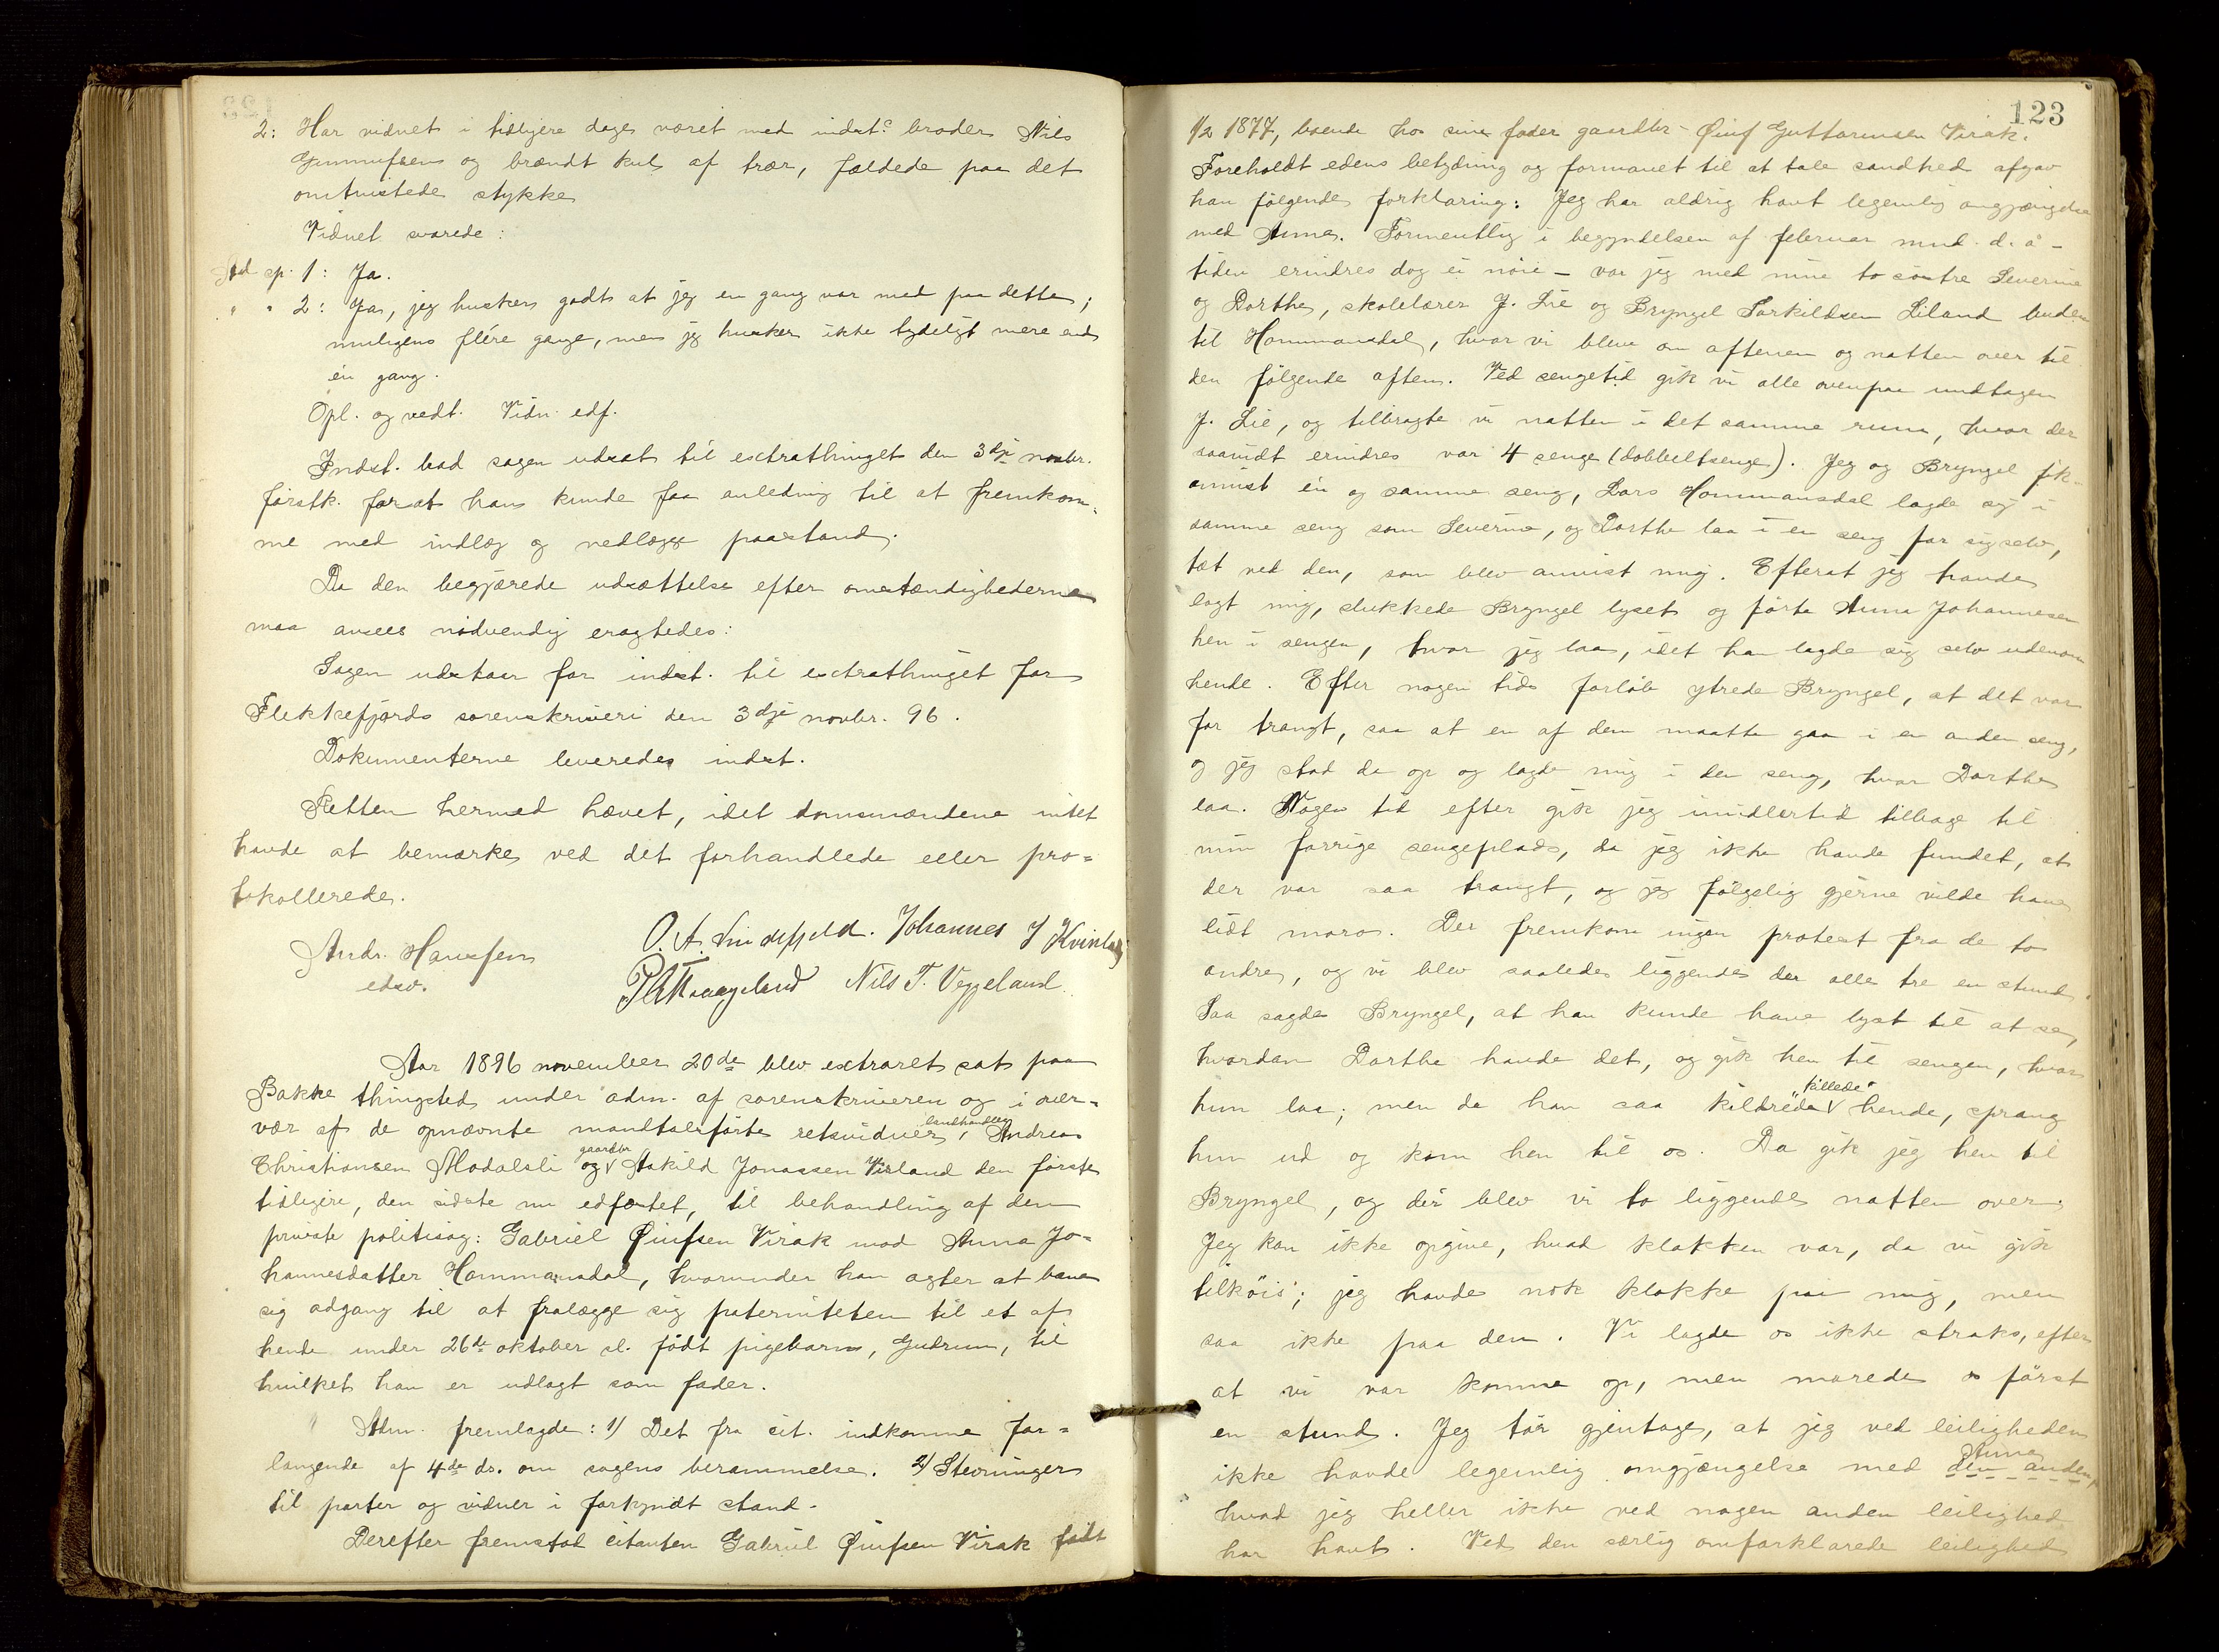 2: Har vidnet i tidligere dage været med indst.s broder Nils
Gunnufsen og brændt kul af trær, fældede paa det
omtvistede stykke
Vidnet svarede:
Ad sp. 1: Ja.
" " 2: Ja, jeg husker godt at jeg en gang var med paa dette;
muligens flére gange, men jeg husker ikke tydeligt mere end
én gang.
Opl. og vedt. Vidn. edf.
Indst. bad sagen udsat til extrathinget den 3dje novbr.
førstk. for at han kunde faa anledning til at fremkom-
me med indlæg og nedlægge paastand.
Da den begjærede udsættelse efter omstændighederne
maa ansees nødvendig eragtedes:
Sagen udstaar for indst. til extrathinget for
Flekkefjords sorenskriveri den 3dje novbr. 96.
Dokumenterne leveredes indst.
Retten hermed hævet, idet domsmændene intet
havde at bemærke ved det forhandlede eller pro=
tokollerede.
Andr. Hansen O. A. Lindefjeld. Johannes J Kvinlaug
edsv. Nils T. Veggeland
Aar 1896 november 20de blev extraret sat paa
Bakke thingsted under adm. af sorenskriveren og i over=
vær af de opnævnte mandtalsførte retsvidner, landhandler Andreas
Christiansen Modalsli og gaardbr Askild Jonassen Virland den første
tidligere, den sidste nu edfæstet, til behandling af den
private politisag: Gabriel Øiufsen Virak mod Anna Jo=
hannesdatter Hammansdal, hvorunder han agter at bane
sig adgang til at fralægge sig paterniteten til et af
hende under 26de oktober sl. født pigebarn, Gudrun, til
hvilket han er udlagt som fader.
Adm. fremlagde: 1) Det fra cit. indkomne for=
langende af 4de ds. om sagens berammelse. 2) Stevninger
til parter og vidner i forkyndt stand.
Derefter fremstod citanten Gabriel Øiufsen Virak født
123
1/2 1877, boende hos sin fader gaardbr. Øiuf Guttormsen Virak.
Foreholdt edens betydning og formanet til at tale sandhed afgav
han følgende forklaring: Jeg har aldrig havt legemlig omgjængelse
med Anna. Formentlig i begyndelsen af februar mnd. d. å -
tiden erindres dog ei nøie - var jeg med mine to søstre Severine
og Dorthe, skolelærer J. Lie og Bryngel Torkildsen Liland buden
til Hammansdal, hvor vi blev om aftenen og natten over til
den følgende aften. Ved sengetid gik vi alle ovenpaa undtagen
J. Lie, og tilbragte vi natten i det samme rum, hvor der
saavidt erindres var 4 senge (dobbeltsenge). Jeg og Bryngel fik
anvist én og samme seng, Lars Hommansdal lagde sig i
samme seng som Severine, og Dorthe laa i en seng for sig selv,
tæt ved den, som blev anvist mig. Efterat jeg havde
lagt mig, slukkede Bryngel lyset og førte Anna Johannesen
hen i sengen, hvor jeg laa, idet han lagde sig selv udenom
hende. Efter nogen tids forløb ytrede Bryngel, at det var
for trangt, saa at en af dem maatte gaa i en anden seng,
og jeg stod da op og lagde mig i den seng, hvor Dorthe
laa. Nogen tid efter gik jeg imidlertid tilbage til
min forrige sengeplads, da jeg ikke havde fundet, at
der var saa trangt, og jeg følgelig gjerne vilde have
lidt moro. Der fremkom ingen protest fra de to
andre, og vi blev saaledes liggende der alle tre en stund.
Saa sagde Bryngel, at han kunde have lyst til at se,
hvordan Dorthe havde det, og gik hen til sengen, hvor
hun laa; men da han saa kildrede "killede" hende, sprang
hun ud og kom hen til os. Da gik jeg hen til
Bryngel, og dér blev vi to liggende natten over.
Jeg kan ikke opgive, hvad klokken var, da vi gik
tilkøis; jeg havde nok klokke paa mig, men
saa ikke paa den. Vi lagde os ikke straks, efter
at vi var komne op, men morede os først
en stund. Jeg tør gjentage, at jeg ved leiligheden
ikke havde legemlig omgjængelse med den anden, Anna
hvad jeg heller ikke ved nogen anden leilighed
har havt. Ved den særlig omforklarede leilighed